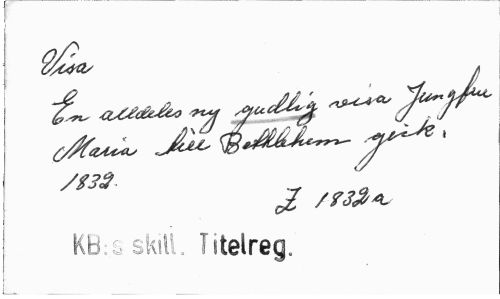 Visa
En alldeles ny gudlig visa Jungfru
Maria till Bethlehem gick.
1832.
Z 1832a
KB:s skill. Titelreg.